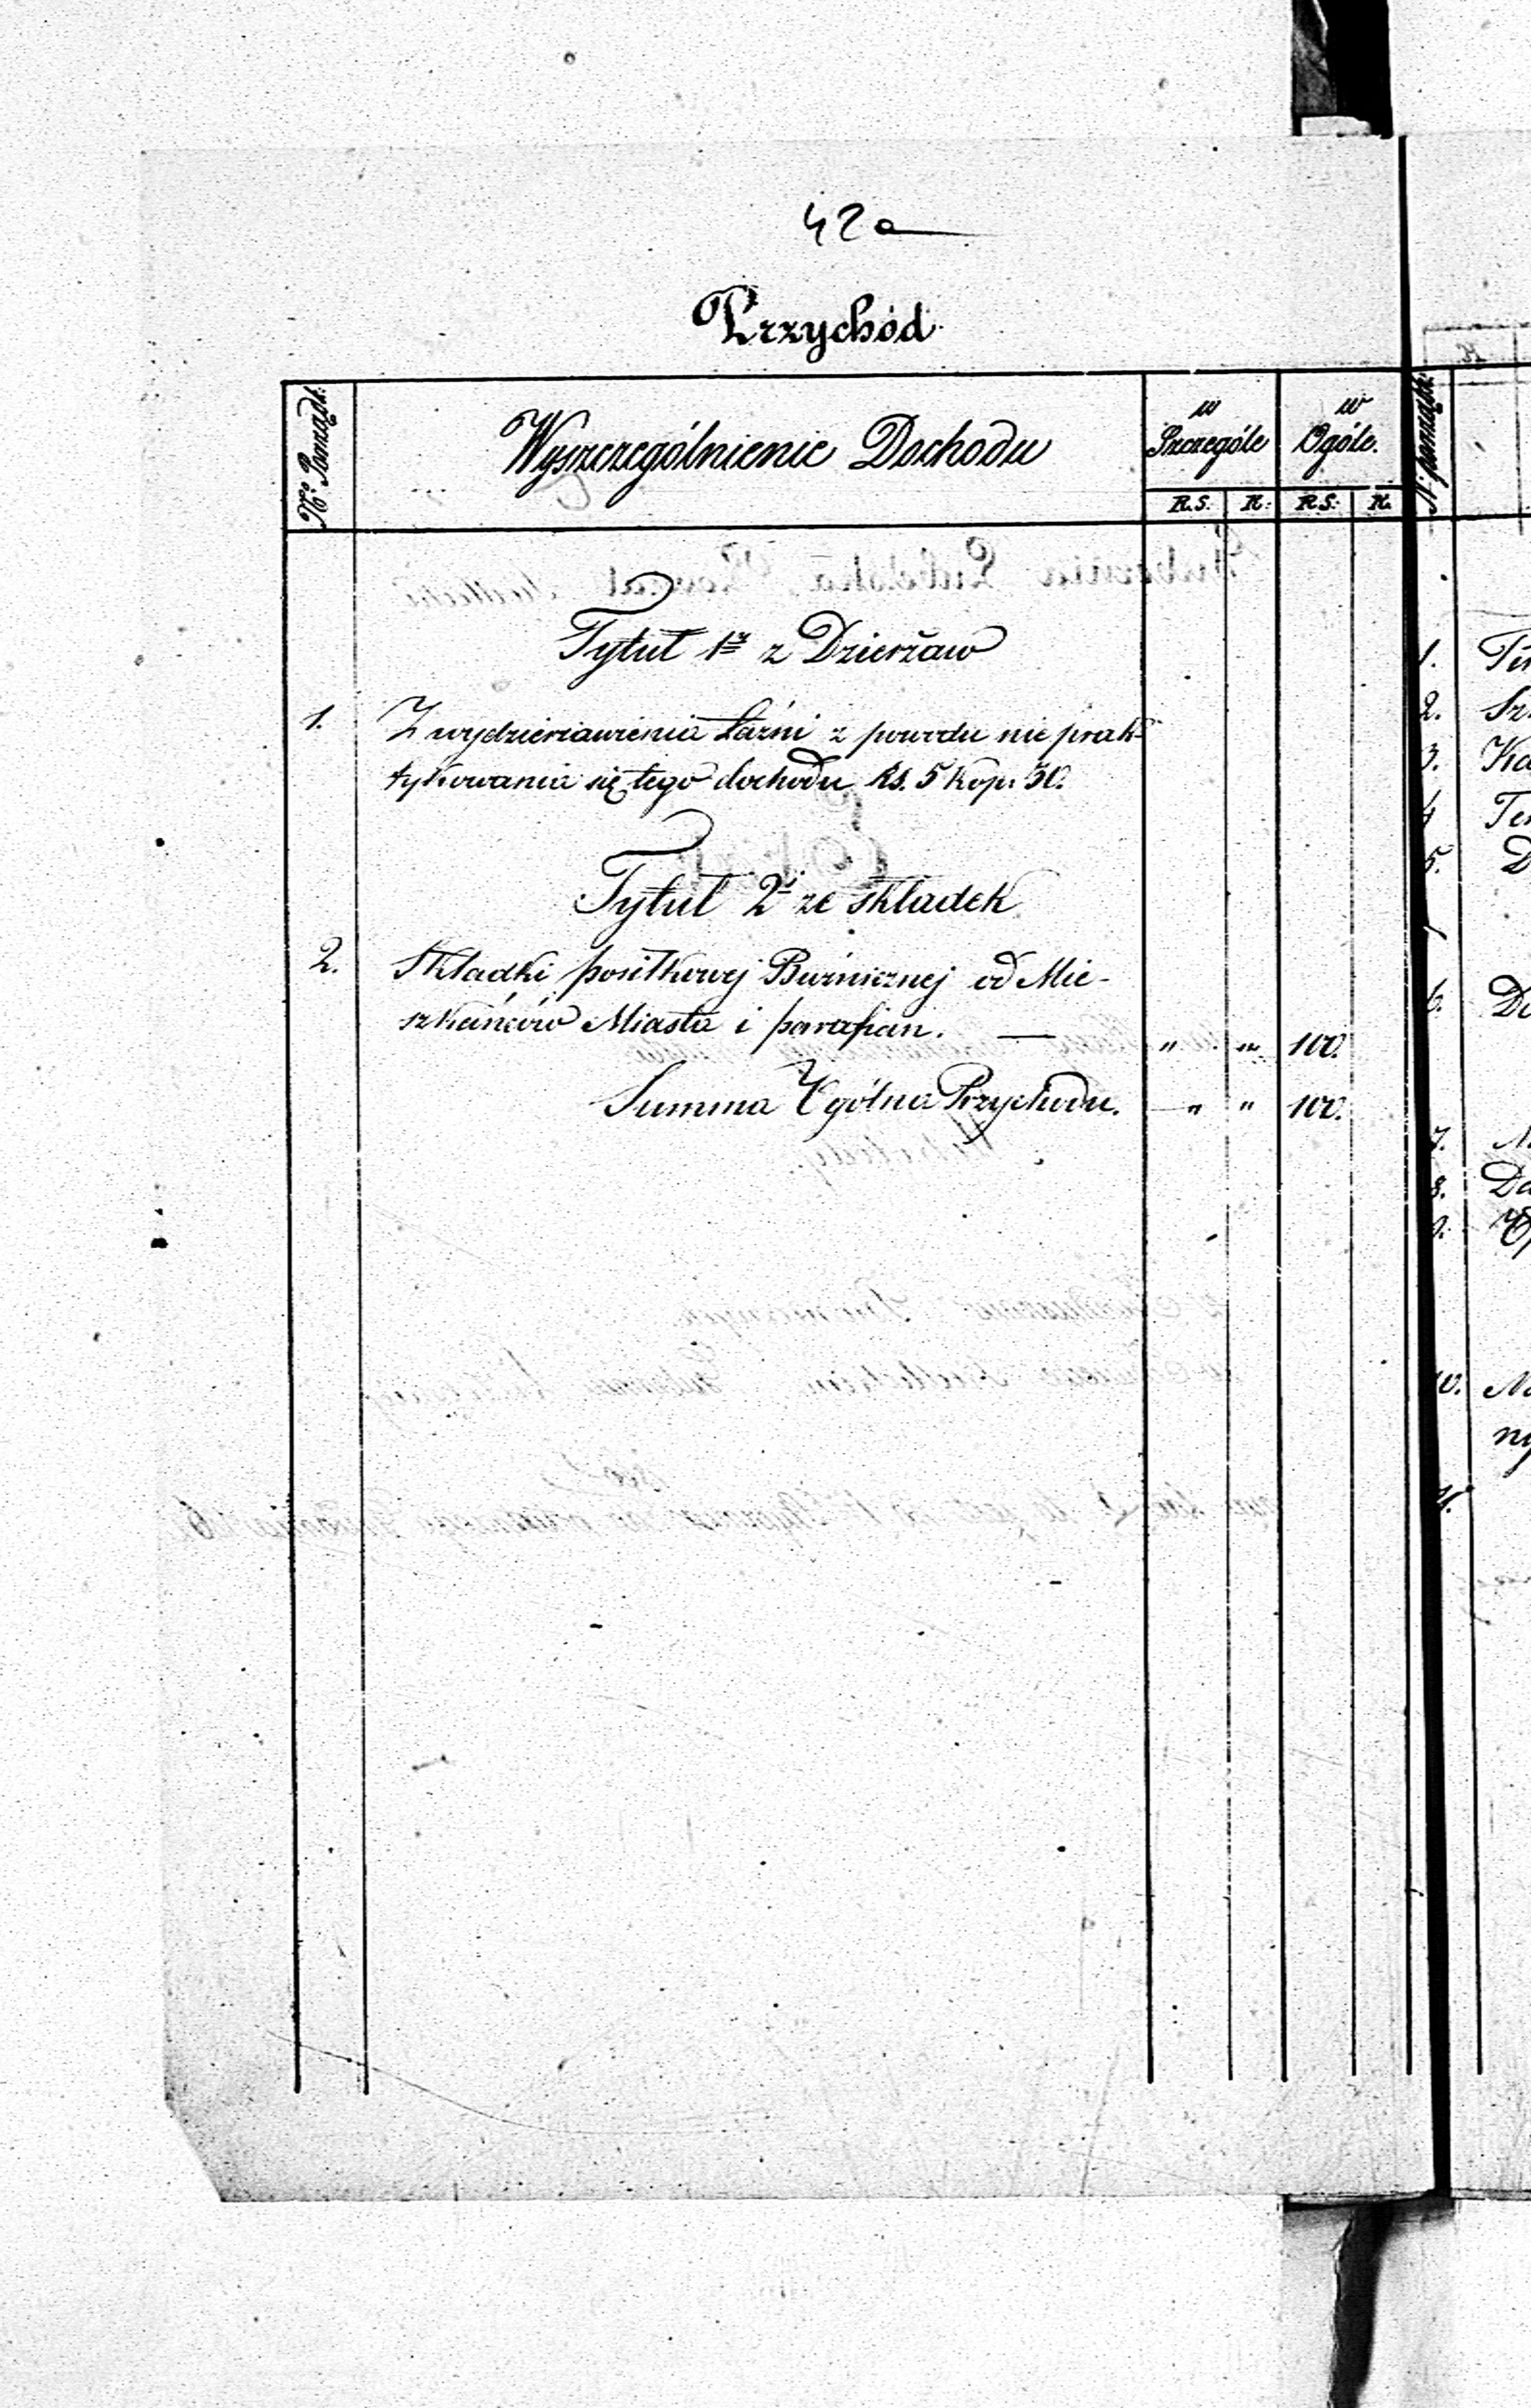 42a
Przychód
No Porządk:
Wyszczególnienie Dochodu
w Szczególe
w Ogóle.
R.S. K: R.S. K.
Tytuł 1y z Dzierżaw
1. Z wydzierżawienia Łaźni z powodu nie prak-
tykowania się tego dochodu Rs. 5 kop. 30.
Tytuł 2i ze składek
2. Składki posiłkowej Bużnicznej od Mie-
szkańców Miasta i parafian. — " " 100.
Summa Ogólna Przychodu. — " " 100.
N: porządk:
1.
2. Sz.
3. Ka
4 Te
5. D
6. Do
7.
8. Da
10.
ny